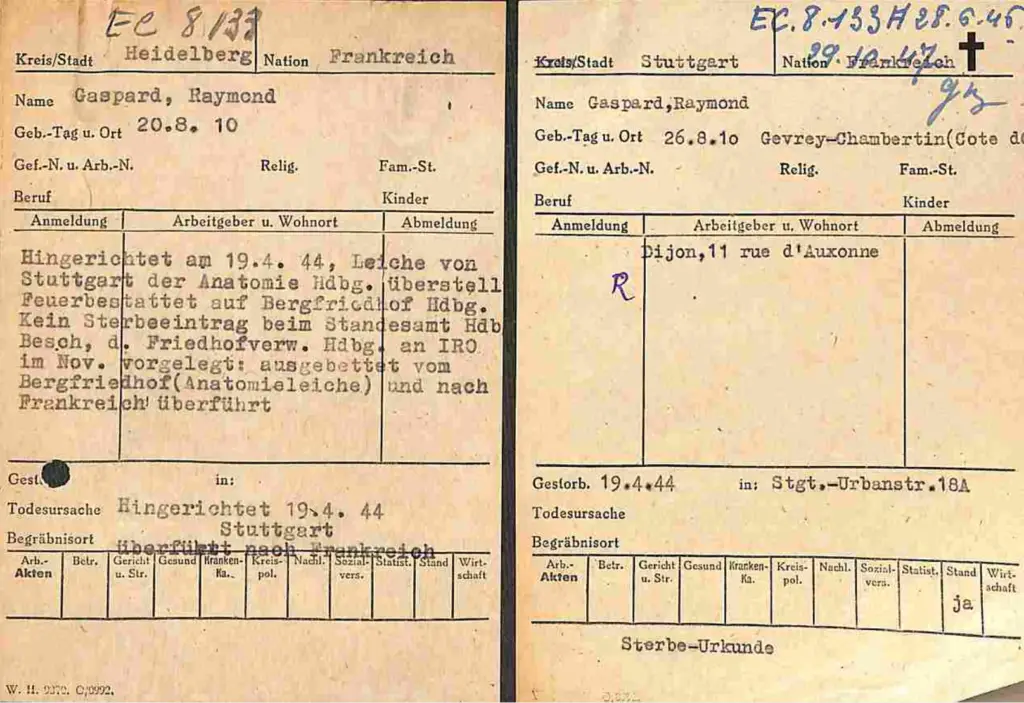 EC 8/133
Kreis/Stadt Heidelberg Nation Frankreich
Name Gaspard, Raymond
Geb.-Tag u. Ort 20.8. 10
Gef.-N. u. Arb.-N. Relig. Fam.-St.
Beruf Kinder
Anmeldung Arbeitgeber u. Wohnort Abmeldung
Hingerichtet am 19.4. 44, Leiche von
Stuttgart der Anatomie Hdbg. überstell
Feuerbestattet auf Bergfriedhof Hdbg.
Kein Sterbeeintrag beim Standesamt Hdb
Besch, d. Friedhofverw. Hdbg. an IRO
im Nov. vorgelegt: ausgebettet vom
Bergfriedhof(Anatomieleiche) und nach
Frankreich überführt
Gest. in:
Todesursache Hingerichtet 19.4. 44
Stuttgart
Begräbnisort überführt nach Frankreich
Arb.-Akten Betr. Gericht u. Str. Gesund Kranken-Ka. Kreis-pol. Nachl. Sozial-vers. Statist. Stand Wirt-schaft
W. H. 9370. O/0992.
EC. 8.133 A 28.6.46
29.10.47
Kreis/Stadt Stuttgart Nation Frankreich
Name Gaspard,Raymond
Geb.-Tag u. Ort 26.8.10 Gevrey-Chambertin(Cote de
Gef.-N. u. Arb.-N. Relig. Fam.-St.
Beruf Kinder
Anmeldung Arbeitgeber u. Wohnort Abmeldung
Dijon,11 rue d'Auxonne
R
Gestorb. 19.4.44 in: Stgt.-Urbanstr.18A
Todesursache
Begräbnisort
Arb.-Akten Betr. Gericht u. Str. Gesund Kranken-Ka. Kreis-pol. Nachl. Sozial-vers. Statist. Stand Wirt-schaft
ja
Sterbe-Urkunde